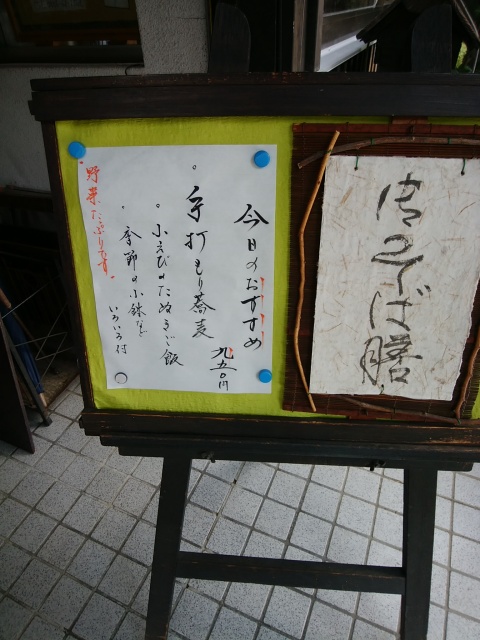 御そば膳
今日のおすすめ
。手打もり蕎麦
九五〇円
。小えびのたぬきご飯
。季節の小鉢など
いろいろ付
野菜たっぷりです。